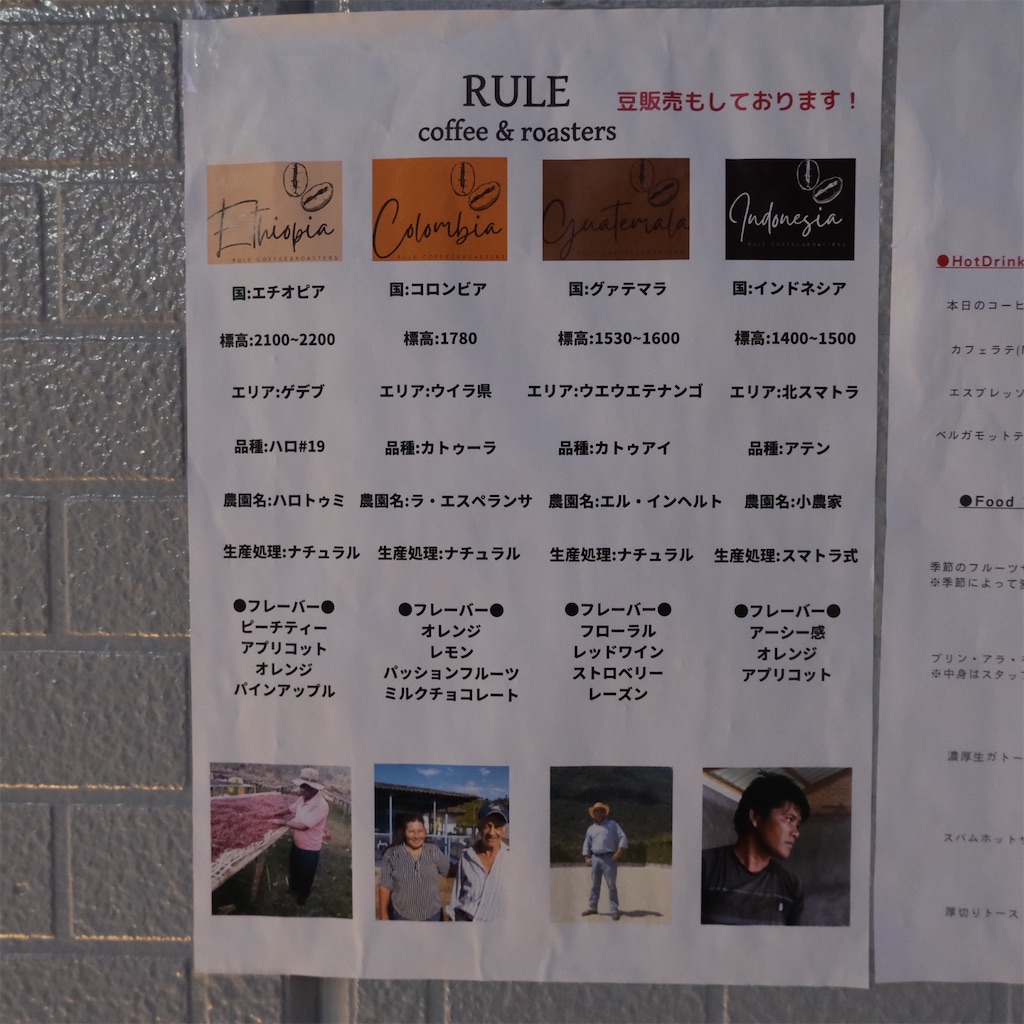 RULE
coffee & roasters
豆販売もしております！
Ethiopia
RULE COFFEE&ROASTERS
Colombia
RULE COFFEE&ROASTERS
Guatemala
Indonesia
RULE COFFEE&ROASTERS
国:エチオピア
標高:2100~2200
エリア:ゲデブ
品種:ハロ#19
農園名:ハロトゥミ
生産処理:ナチュラル
●フレーバー●
ピーチティー
アプリコット
オレンジ
パインアップル
国:コロンビア
標高:1780
エリア:ウイラ県
品種:カトゥーラ
農園名:ラ・エスペランサ
生産処理:ナチュラル
●フレーバー●
オレンジ
レモン
パッションフルーツ
ミルクチョコレート
国:グァテマラ
標高:1530~1600
エリア:ウエウエテナンゴ
品種:カトゥアイ
農園名:エル・インヘルト
生産処理:ナチュラル
●フレーバー●
フローラル
レッドワイン
ストロベリー
レーズン
国:インドネシア
標高:1400~1500
エリア:北スマトラ
品種:アテン
農園名:小農家
生産処理:スマトラ式
●フレーバー●
アーシー感
オレンジ
アプリコット
●HotDrink
本日のコーヒ
カフェラテ
エスプレッソ
ベルガモットテ
●Food
季節のフルーツ
※季節によって
プリン・アラ・
※中身はスタッフ
濃厚生ガトー
スパムホット
厚切りトース